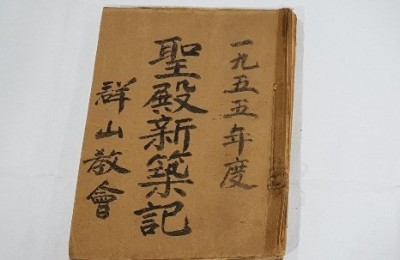 一九五五年度
聖殿新築記
群山敎會